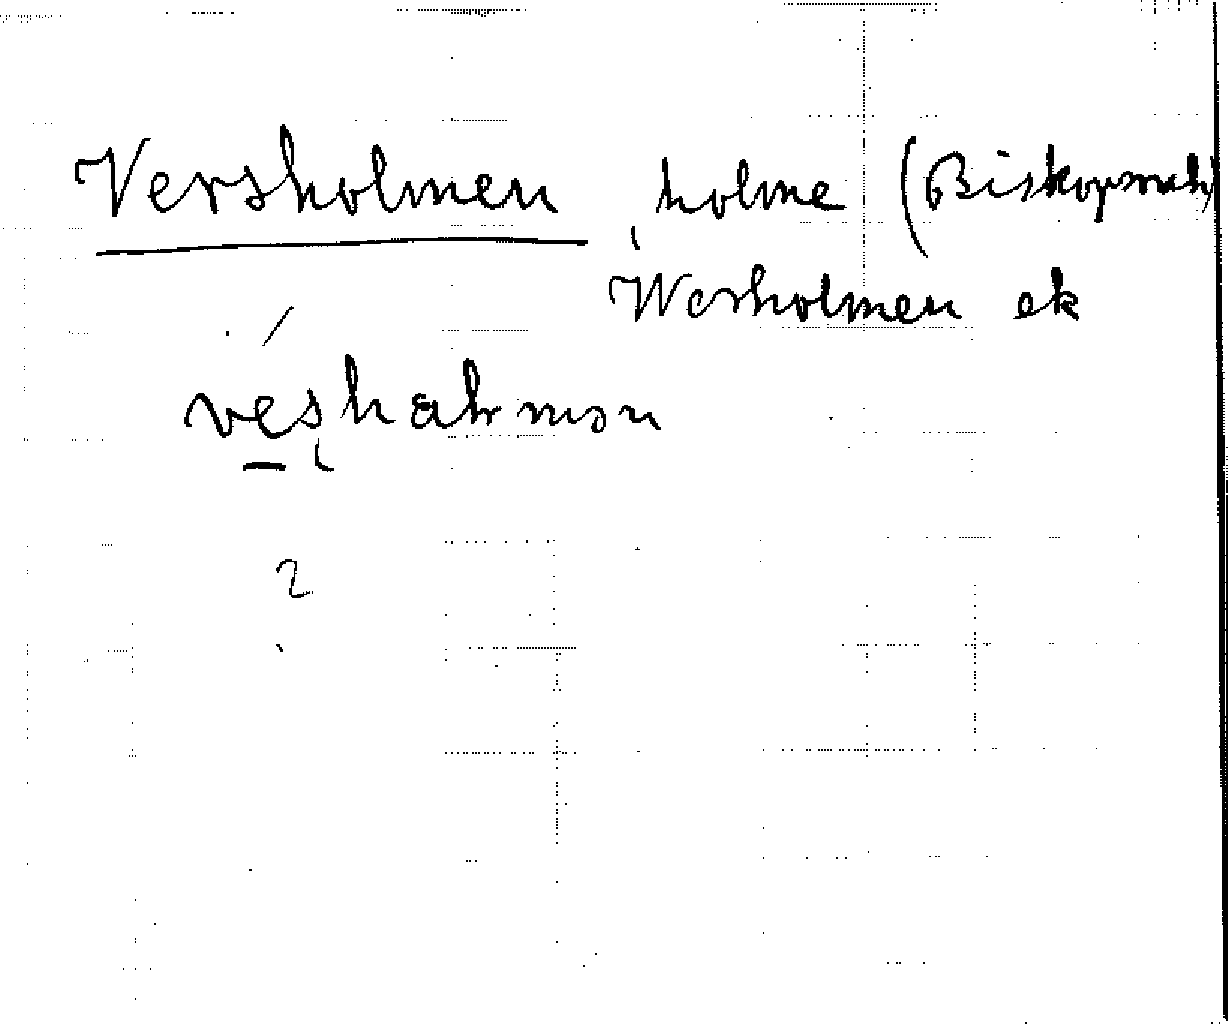 Versholmen, holme (Biskopsuch)
Wersholmen ek
veshalmən
?